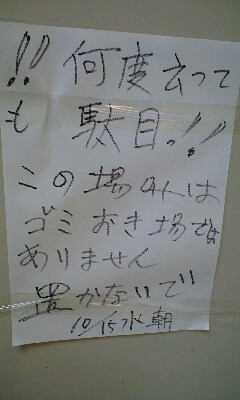 !!何度云って
も 駄目っ!!
この場所は
ゴミおき場では
ありません
置かないで
10/15水朝